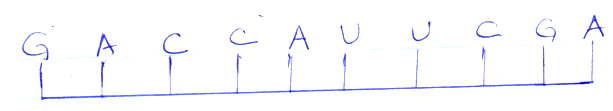 G A C C A U U C G A